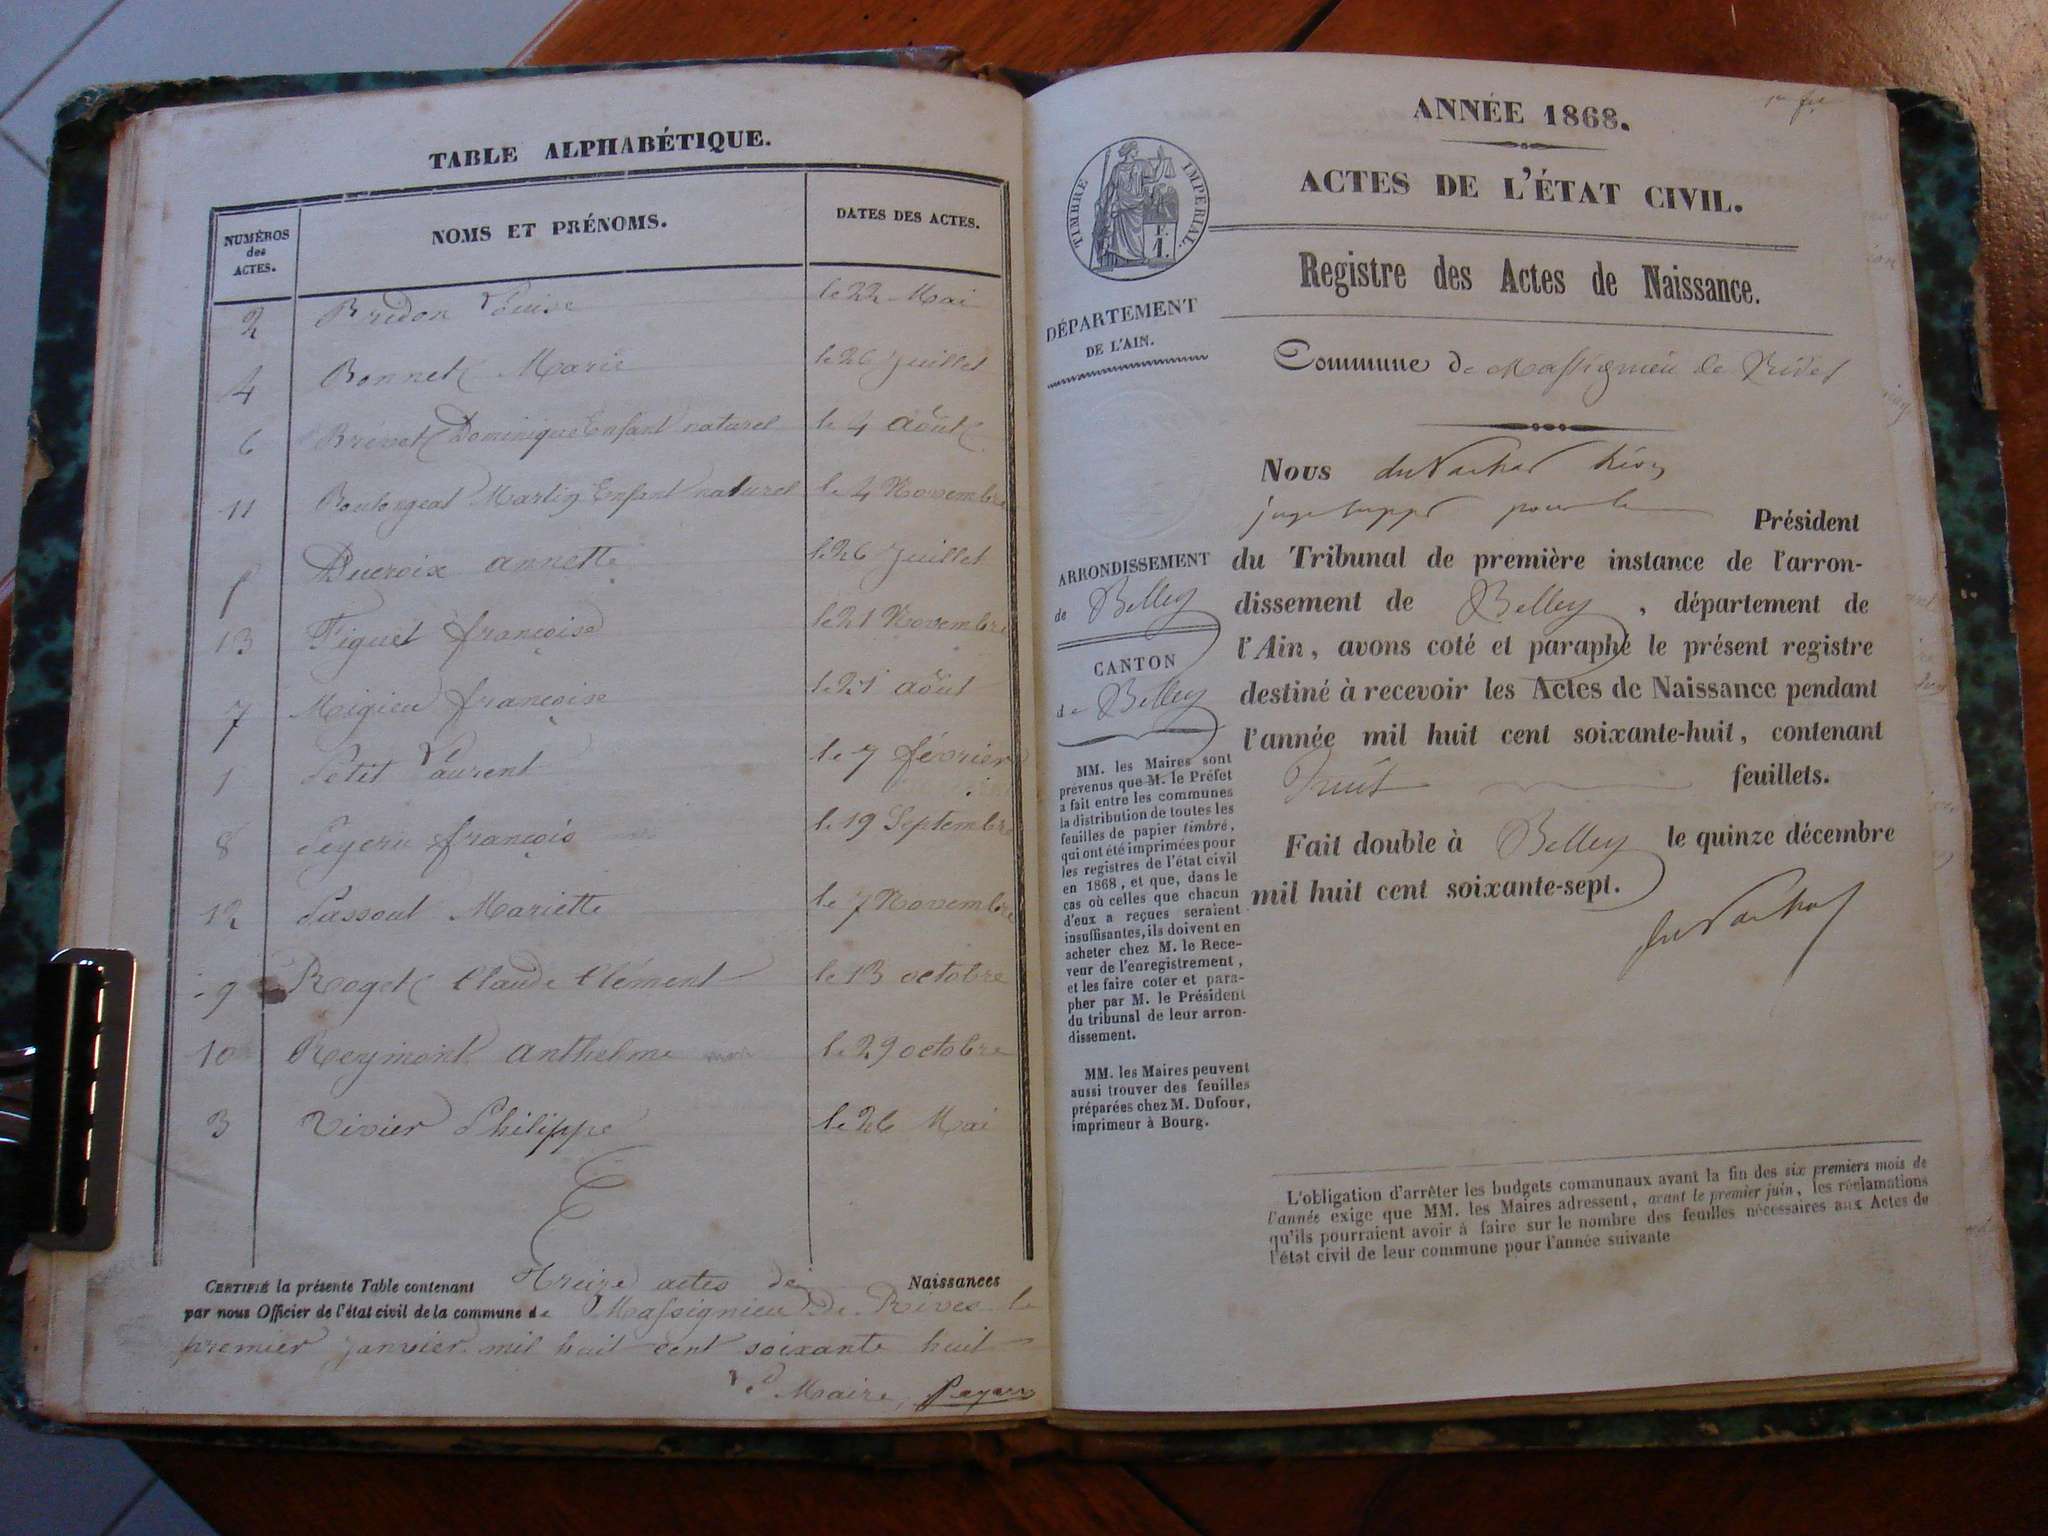 TABLE ALPHABÉTIQUE.
NUMÉROS des ACTES. NOMS ET PRÉNOMS. DATES DES ACTES.
2 Bridon Louise le 22 Mai
4 Bonnet Marie le 26 Juillet
6 Dominique Enfant naturel le 4 Août
11 Martin Enfant naturel le 4 Novembre
Ducroix annette le 26 Juillet
13 Figuet françoise le 21 Novembre
7 Migieu françoise le 21 août
1 Petit Laurent le 7 février
8 françois le 19 Septembre
12 Mariette le 7 Novembre
9 Roget Claude Clément le 13 octobre
10 Reymont anthelme le 29 octobre
3 Vivier Philippe le 26 Mai
CERTIFIÉ la présente Table contenant Treize actes de Naissances
par nous Officier de l'état civil de la commune de Massignieu de Rives le
premier janvier mil huit cent soixante huit
Le Maire,
ANNÉE 1868.
ACTES DE L'ÉTAT CIVIL.
TIMBRE IMPÉRIAL.
F.
1.
Registre des Actes de Naissance.
DÉPARTEMENT
DE L'AIN.
Commune de Massignieu de Rives
Nous
juge suppt pour le Président
du Tribunal de première instance de l'arron-
dissement de Belley, département de
l'Ain, avons coté et paraphé le présent registre
destiné à recevoir les Actes de Naissance pendant
l'année mil huit cent soixante-huit, contenant
huit feuillets.
Fait double à Belley le quinze décembre
mil huit cent soixante-sept.
ARRONDISSEMENT
de Belley
CANTON
de Belley
MM. les Maires sont
prévenus que M. le Préfet
a fait entre les communes
la distribution de toutes les
feuilles de papier timbré,
qui ont été imprimées pour
les registres de l'état civil
en 1868, et que, dans le
cas où celles que chacun
d'eux a reçues seraient
insuffisantes, ils doivent en
acheter chez M. le Rece-
veur de l'enregistrement,
et les faire coter et para-
pher par M. le Président
du tribunal de leur arron-
dissement.
MM. les Maires peuvent
aussi trouver des feuilles
préparées chez M. Dufour,
imprimeur à Bourg.
L'obligation d'arrêter les budgets communaux avant la fin des six premiers mois de
l'année exige que MM. les Maires adressent, avant le premier juin, les réclamations
qu'ils pourraient avoir à faire sur le nombre des feuilles nécessaires aux Actes de
l'état civil de leur commune pour l'année suivante